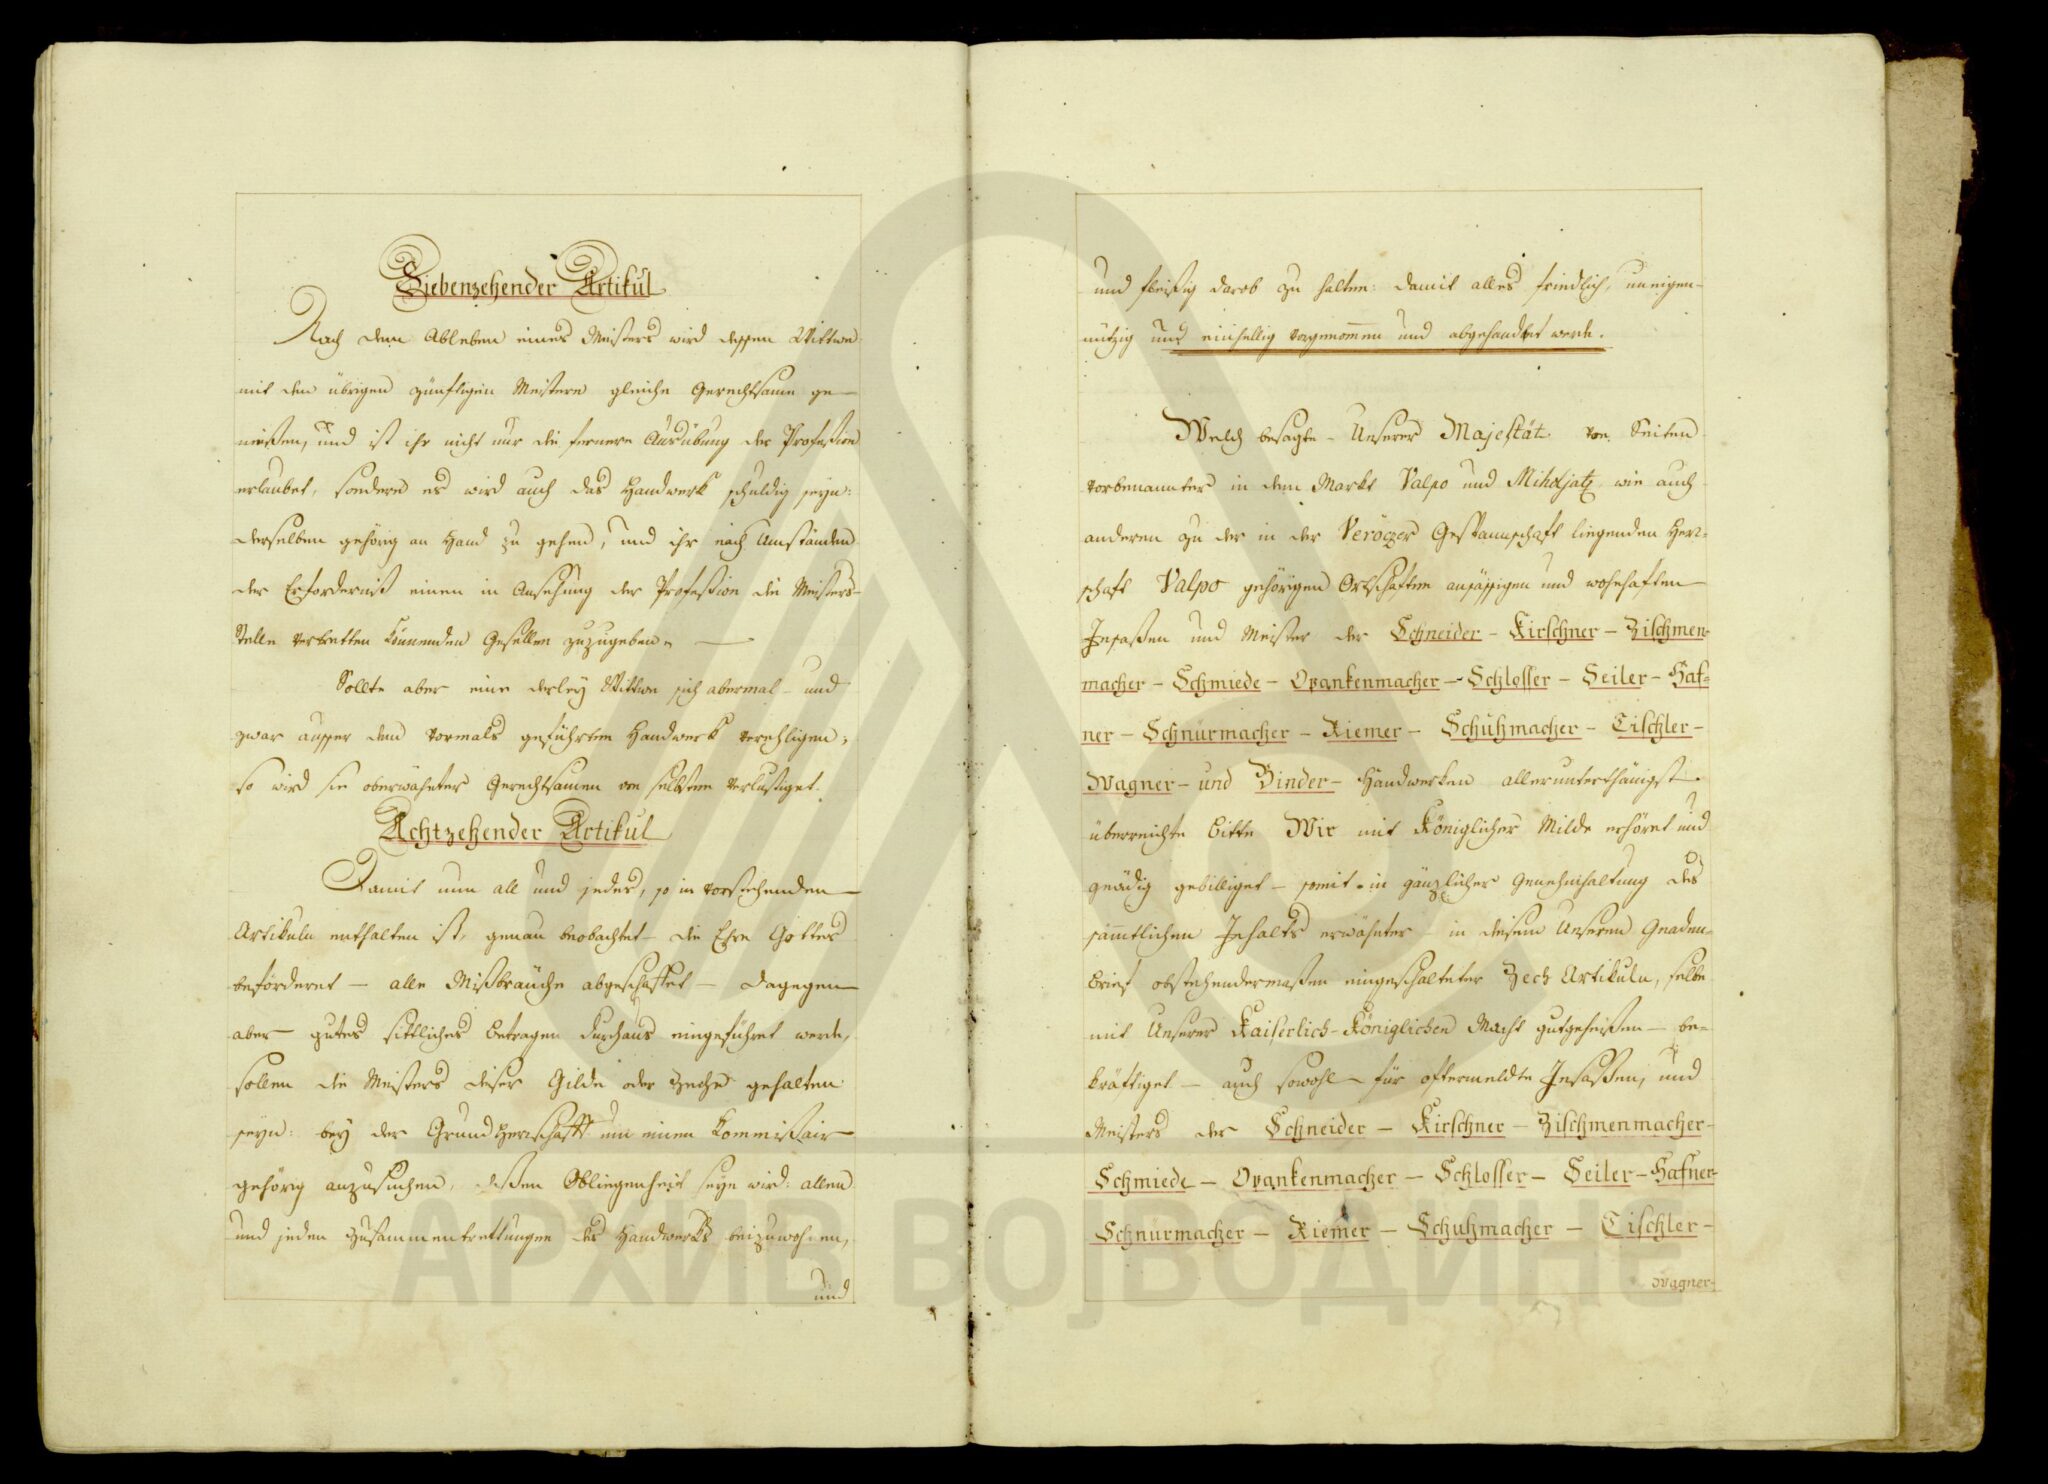 Siebenzehender Artikul
Nach dem Ableben eines Meisters wird dessen Wittwe
mit den übrigen zünftigen Meistern gleiche Gerechtsame ge-
nießen, und ist ihr nicht nur die fernere Ausübung der Profeßion
erlaubet, sondern es wird auch das Handwerk schuldig seyn:
derselben gehörig an Hand zu gehen, und ihr nach Umständen
der Erforderniß einen in Ansehung der Profeßion die Meisters-
stelle vertretten könnenden Gesellen zuzugeben.
Sollte aber eine derley Wittwe sich abermal - und
zwar ausser dem vormals geführten Handwerk verehligen;
so wird sie oberwähnter Gerechtsamen von selbsten verlustiget.
Achtzehender Artikul
Damit nun all und jedes, so in vorstehenden
Artikuln enthalten ist, genau beobachtet - die Ehre Gottes
beförderet - alle Mißbräuche abgeschaffet - dagegen
aber - gutes sittliches Betragen durchaus eingeführet werde,
sollen die Meisters dieser Gilde oder Zeche gehalten
seyn: bey der Grundherrschaft um einen Kommißair
gehörig anzusuchen, deßen Obliegenheit seyn wird: allen
und jeden Zusammentrettungen des Handwerks beizuwohnen,
und
und fleißig darob zu halten: damit alles friedlich, uneigen-
nützig und einhellig vorgenomen und abgehandlet werde.
Welch besagte - Unserer Majestät von Seiten
vorbenannter in dem Markt Valpo und Miholjatz wie auch
anderen zu der in der Veröczer Gespannschaft liegenden Herr-
schaft Valpo gehörigen Ortschaften ansässigen und wohnhaften
Insaßen und Meister der Schneider - Kirschner - Zischmen-
macher - Schmiede - Opankenmacher - Schlosser - Seiler - Haf-
ner - Schnürmacher - Riemer - Schuhmacher - Tischler -
Wagner - und Binder - Handwerken allerunterthänigst
überreichte Bitte Wir mit Königlicher Milde erhöret und
gnädig gebilliget - somit in gänzlicher Genehmhaltung des
sämtlichen Inhalts erwähnter - in diesem Unseren Gnaden-
brief obstehendermaßen eingeschalteter Zech Artikuln, selbe
mit Unserer Kaiserlich-Königlichen Macht gutgeheißen - be-
kräftiget - auch sowohl - für oftermeldte Insaßen, und
Meisters der Schneider - Kirschner - Zischmenmacher -
Schmiede - Opankenmacher - Schlosser - Seiler - Hafner-
Schnürmacher - Riemer - Schuhmacher - Tischler -
Wagner-
АРХИВ ВОЈВОДИНЕ